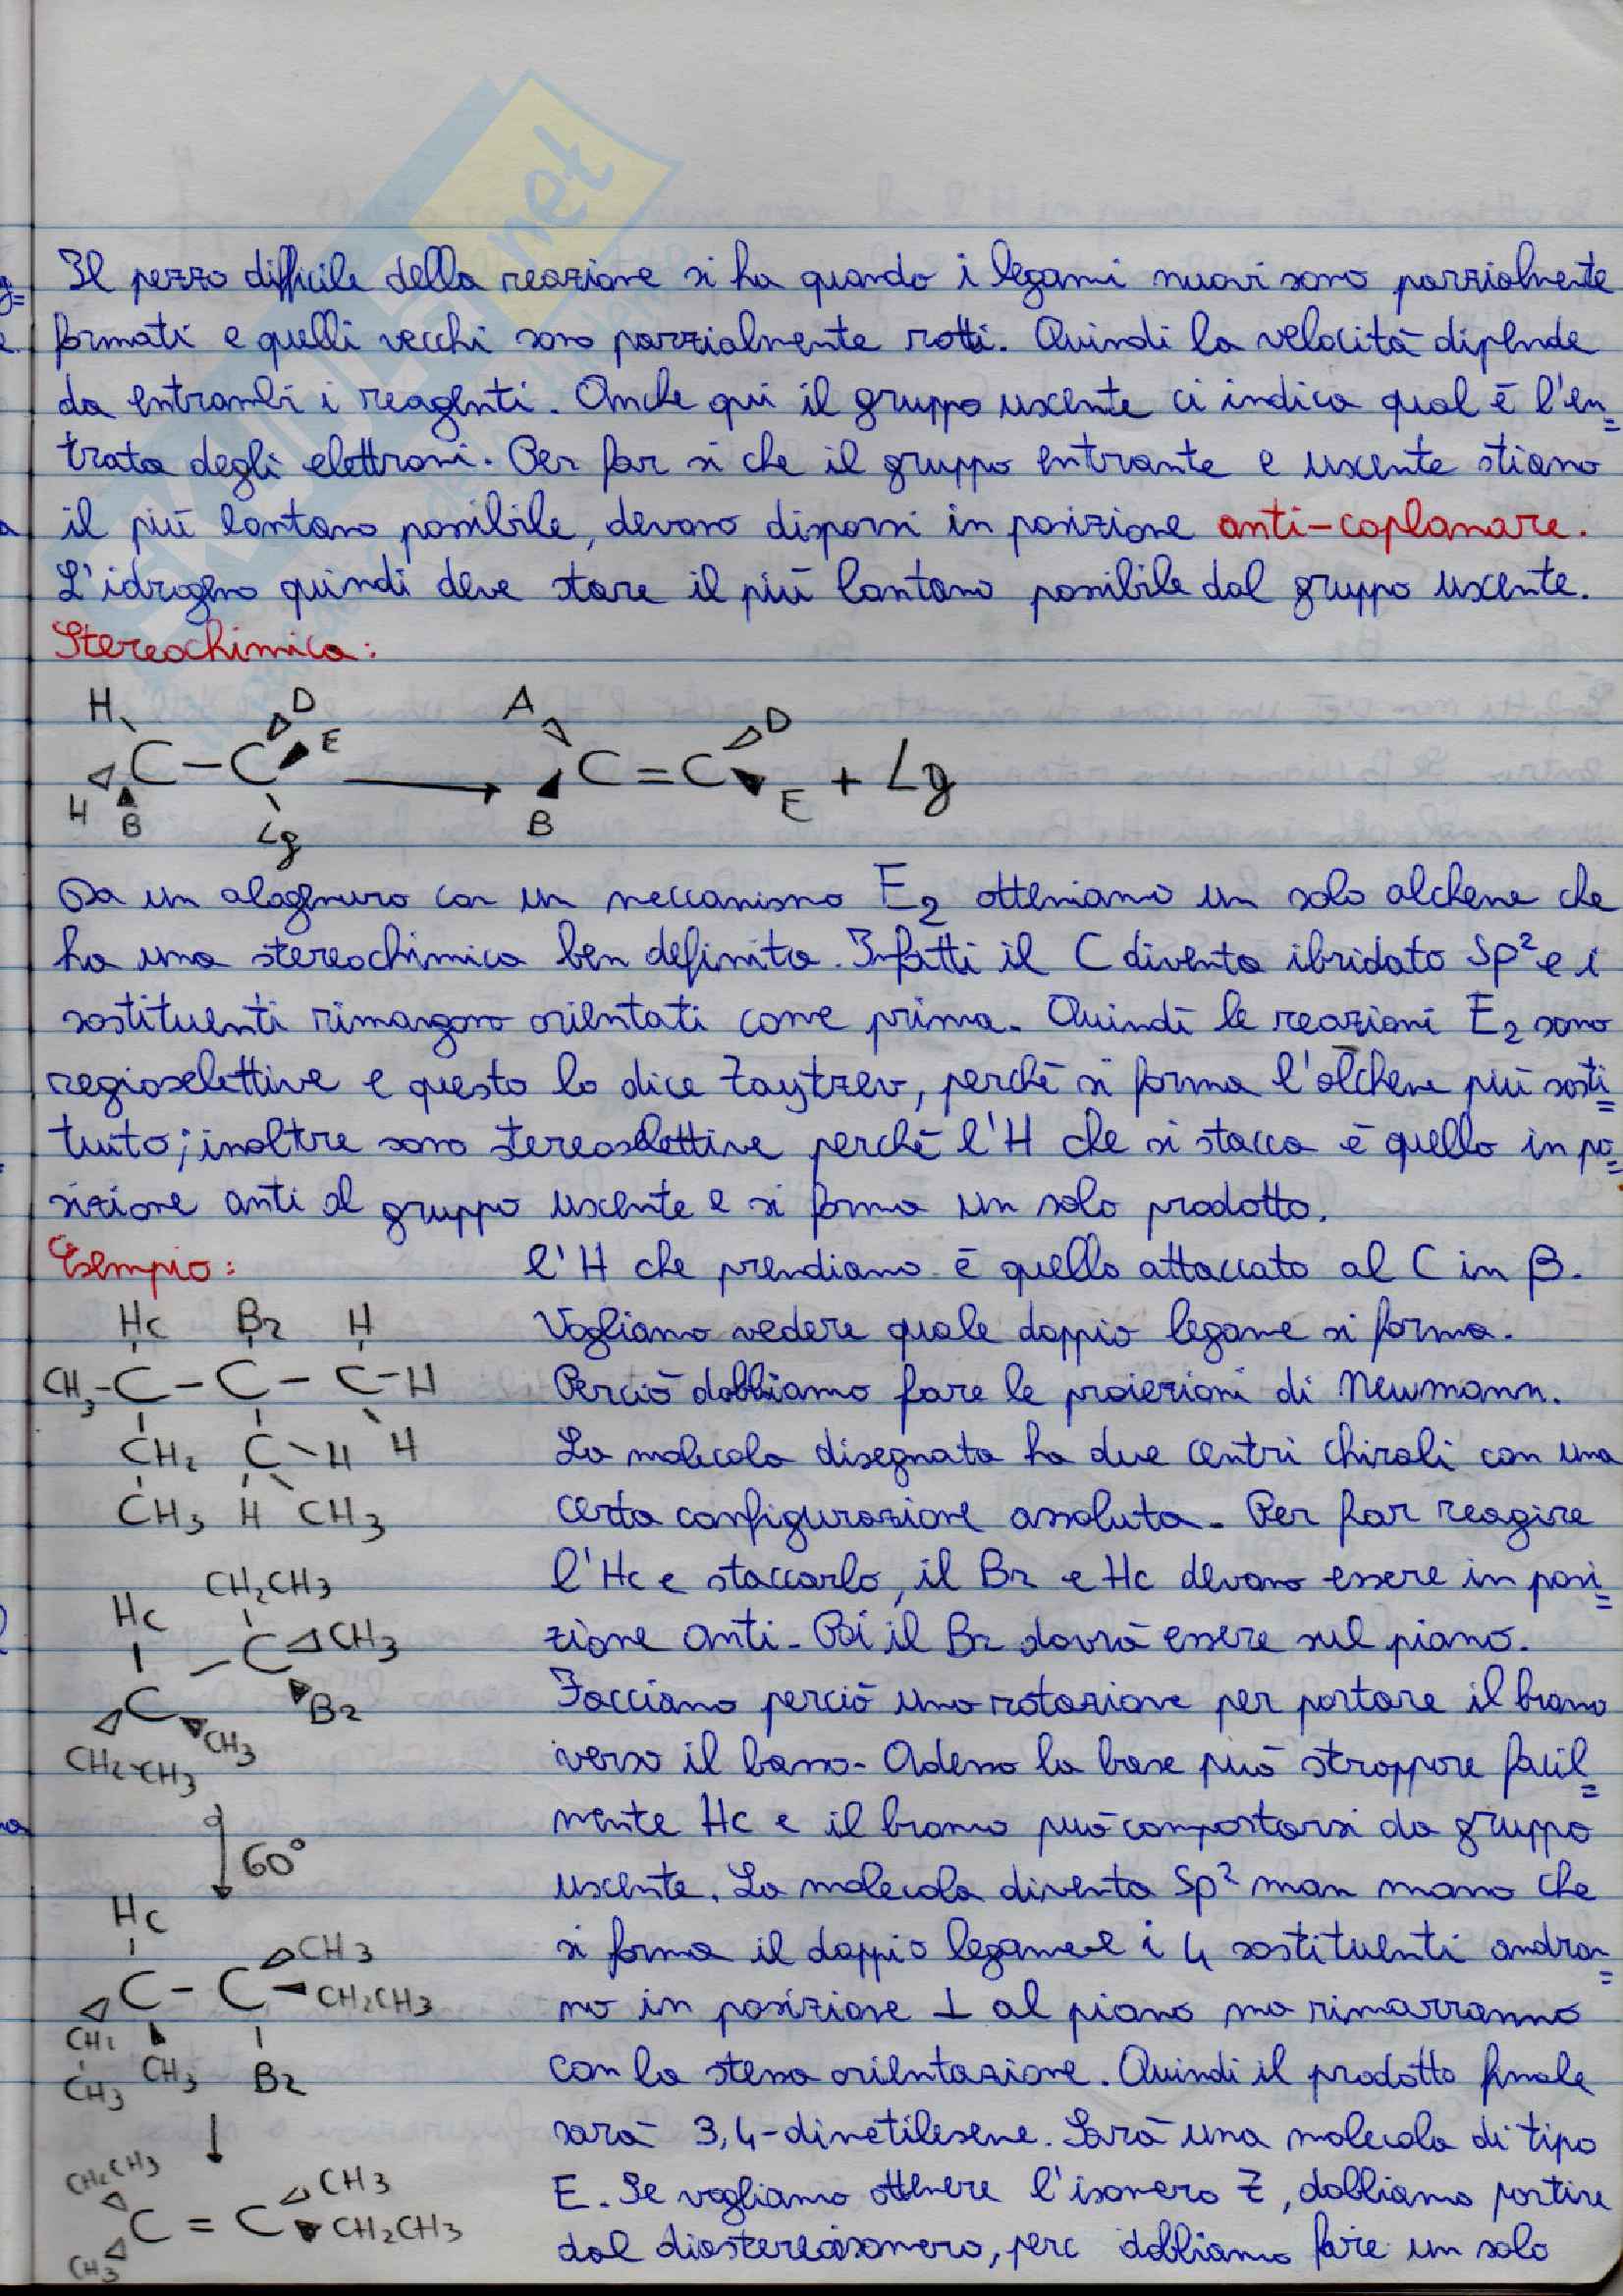 Il pezzo difficile della reazione si ha quando i legami nuovi sono parzialmente
formati e quelli vecchi sono parzialmente rotti. Quindi la velocità dipende
da entrambi i reagenti. Anche qui il gruppo uscente ci indica qual è l'en=
trata degli elettroni. Per far si che il gruppo entrante e uscente stiano
il più lontano possibile, devono disporsi in posizione anti-coplanare.
L'idrogeno quindi deve stare il più lontano possibile dal gruppo uscente.
Stereochimica:
H D A D
C - C E C = C + Lg
H B Lg B E
Da un alogenuro con un meccanismo E2 otteniamo un solo alchene che
ha una stereochimica ben definita. Infatti il C diventa ibridato Sp² e i
sostituenti rimangono orientati come prima. Quindi le reazioni E2 sono
regioselettive e questo lo dice Zaytzev, perchè si forma l'alchene più sosti=
tuito; inoltre sono stereoselettive perchè l'H che si stacca è quello in po=
sizione anti al gruppo uscente e si forma un solo prodotto.
Esempio:
l'H che prendiamo è quello attaccato al C in β.
Vogliamo vedere quale doppio legame si forma.
Perciò dobbiamo fare le proiezioni di Newmann.
La molecola disegnata ha due centri chirali con una
certa configurazione assoluta. Per far reagire
l'Hc e staccarlo, il Br e Hc devono essere in posi=
zione anti. Poi il Br dovrà essere sul piano.
Facciamo perciò una rotazione per portare il bromo
verso il basso. Adesso la base può strappare facil=
mente Hc e il bromo può comportarsi da gruppo
uscente. La molecola diventa Sp² man mano che
si forma il doppio legame e i 4 sostituenti andran=
no in posizione ⊥ al piano ma rimarranno
con la stessa orientazione. Quindi il prodotto finale
sarà 3,4-dimetilesene. Sarà una molecola di tipo
E. Se vogliamo ottenere l'isomero Z, dobbiamo partire
dal diastereoisomero, perc dobbiamo fare un solo
Hc Br H
CH3-C - C - C-H
CH2 C-H H
CH3 H CH3
CH2CH3
Hc
C CH3
C Br
CH3
CH2-CH3
60°
Hc
CH3
C - C CH2CH3
CH2
CH3 CH3 Br
CH2CH3 CH3
C = C CH2CH3
CH3
SKUOLA.net